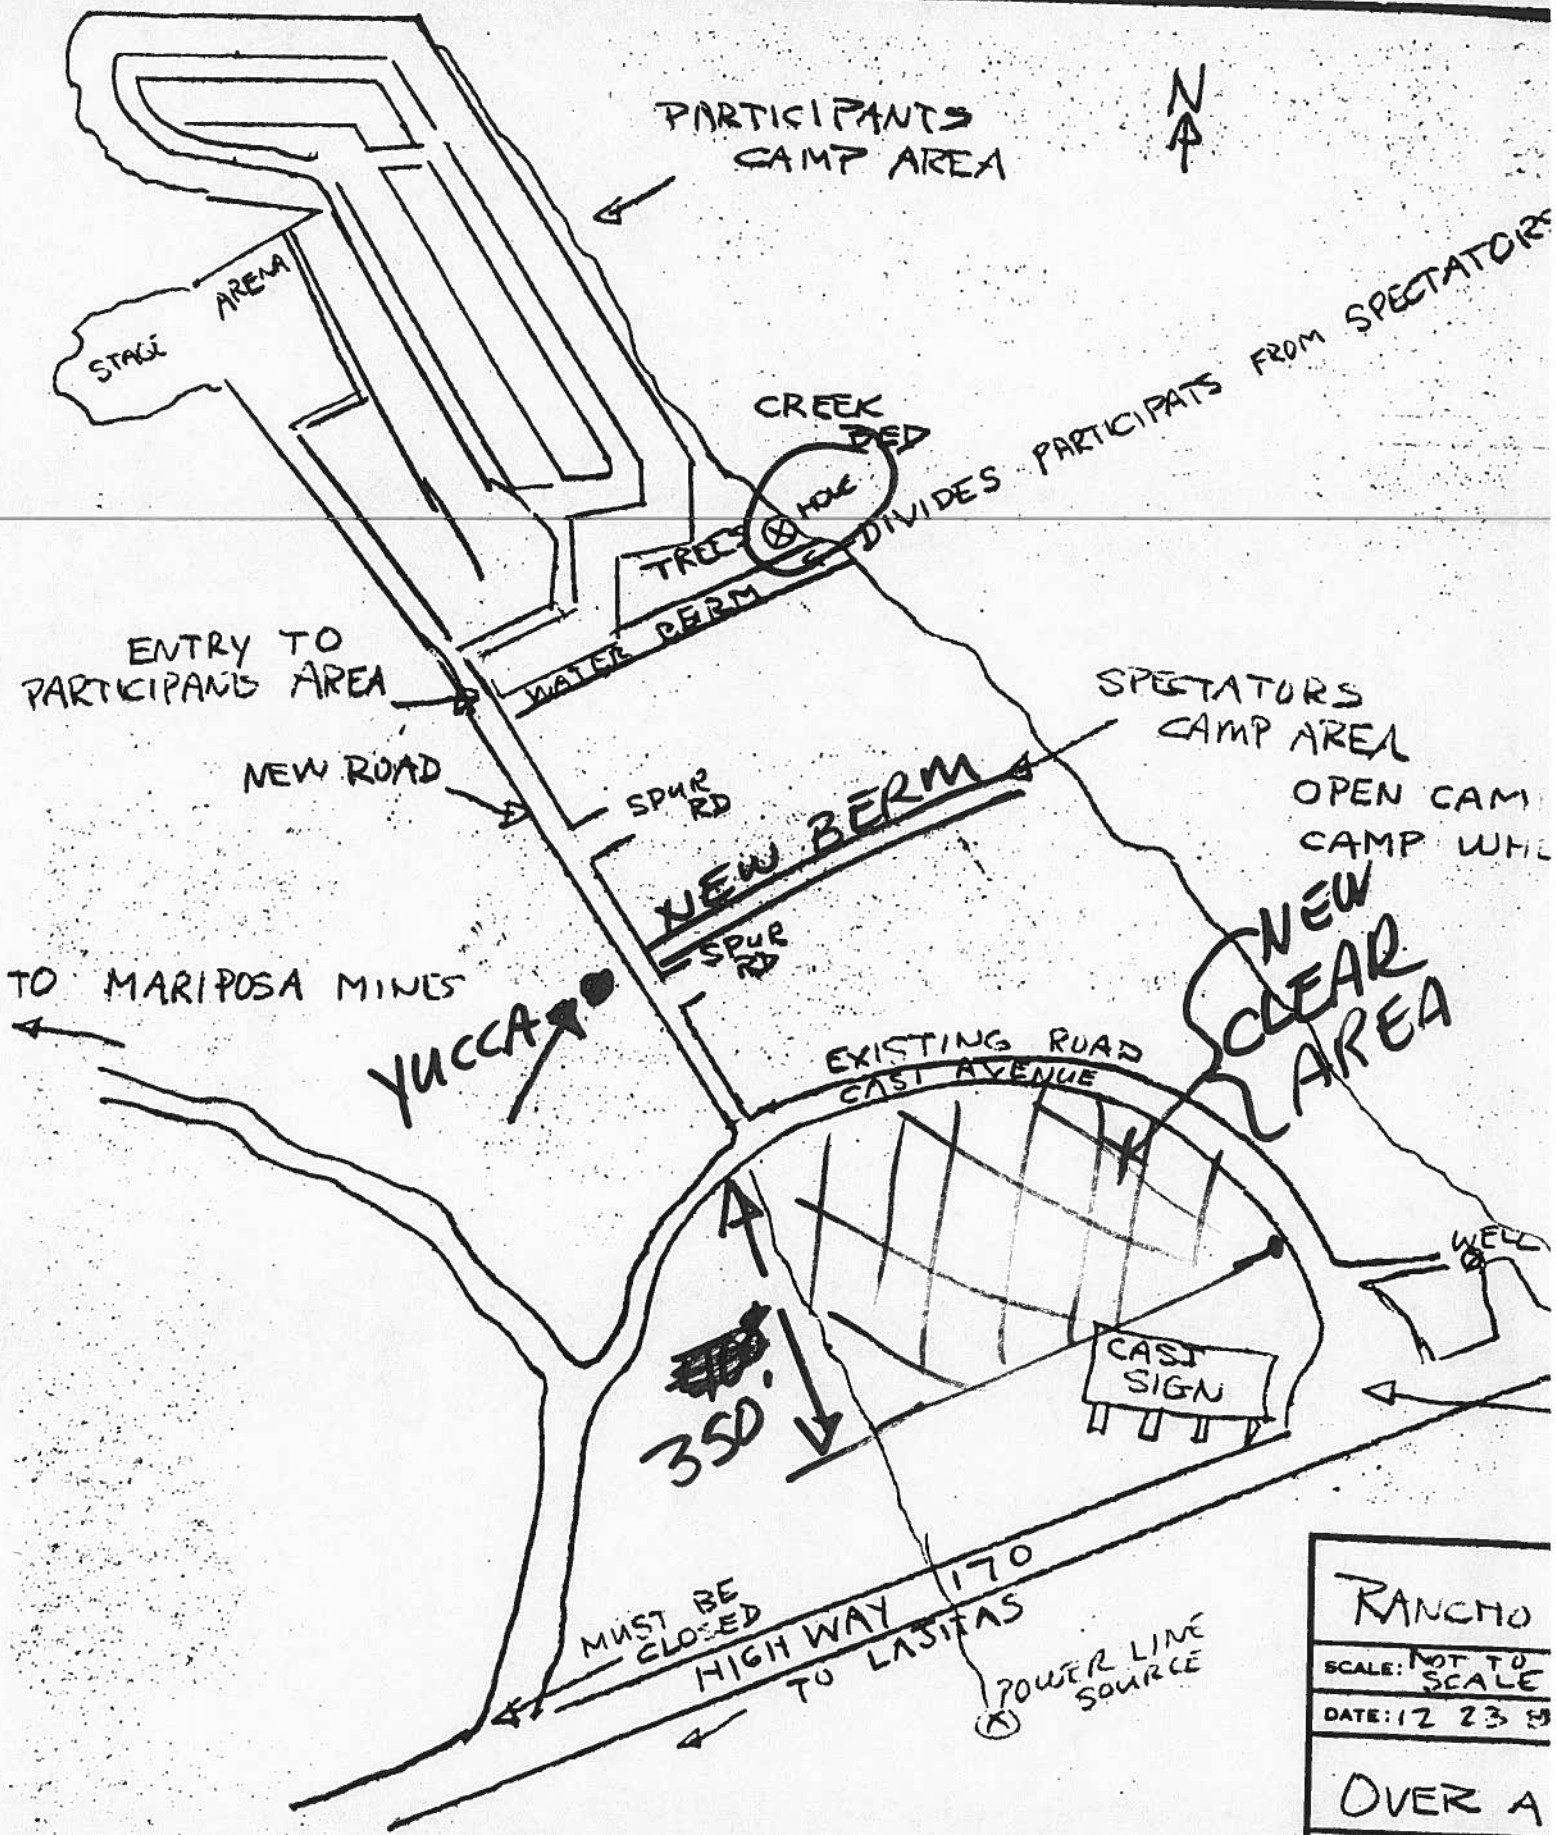 N
PARTICIPANTS
CAMP AREA
ARENA
STAGE
CREEK
BED
HOLE
TREES
DIVIDES PARTICIPATS FROM SPECTATORS
WATER BERM
ENTRY TO
PARTICIPANTS AREA
NEW ROAD
SPUR
RD
SPECTATORS
CAMP AREA
OPEN CAM
CAMP WH
NEW BERM
SPUR
RD
NEW
CLEAR
AREA
TO MARIPOSA MINES
YUCCA
EXISTING ROAD
CASI AVENUE
WELL
350'
CASI
SIGN
MUST BE
CLOSED
HIGHWAY 170
TO LAJITAS
POWER LINE
SOURCE
RANCHO
SCALE: NOT TO
SCALE
DATE: 12 23
OVER A